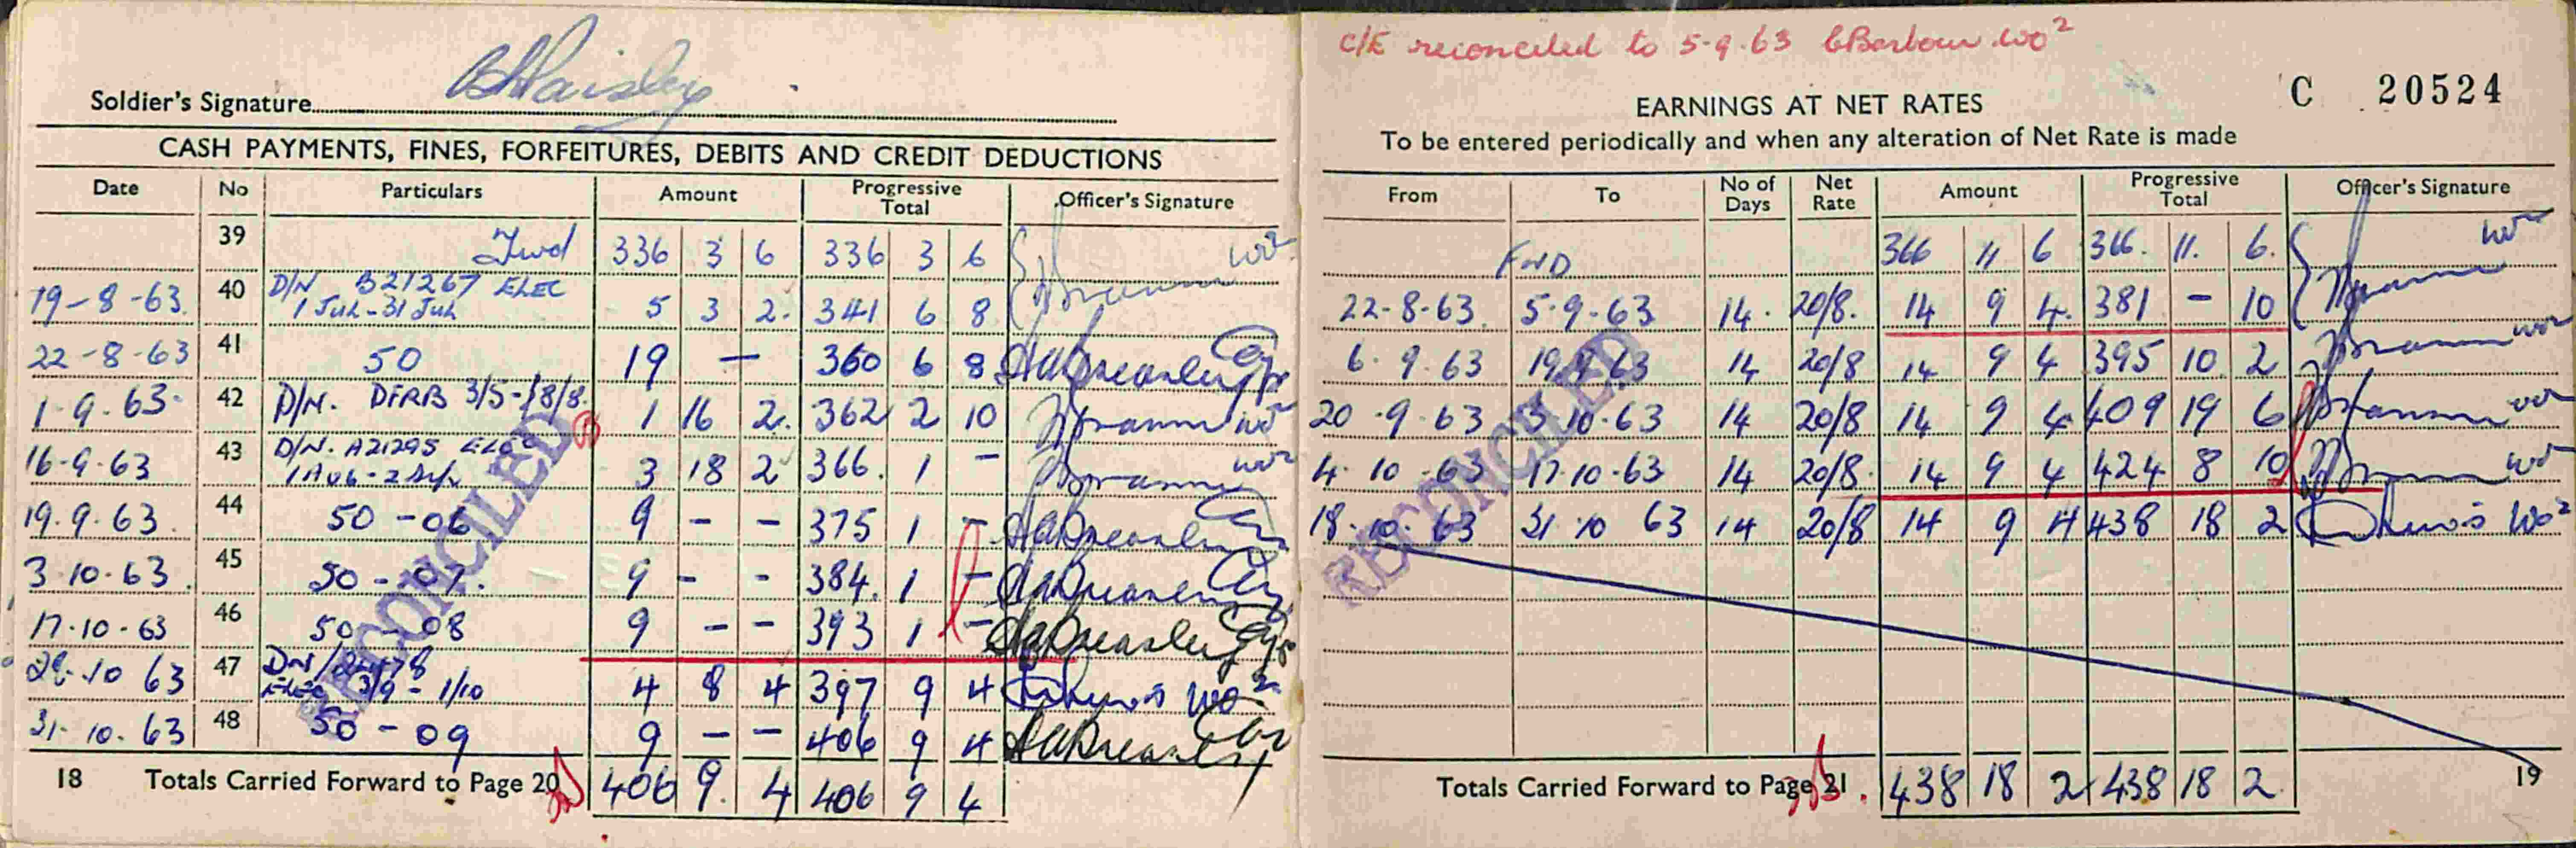 Soldier's Signature
CASH PAYMENTS, FINES, FORFEITURES, DEBITS AND CREDIT DEDUCTIONS
Date No Particulars Amount Progressive Total Officer's Signature
39 Fwd 336 3 6 336 3 6 WO2
19-8-63. 40 D/N B21267 ELEC
1 Jul-31 Jul 5 3 2. 341 6 8
22-8-63 41 50 19 — 360 6 8
1.9.63. 42 D/N. DFRB 3/5-18/8. 1 16 2. 362 2 10
16-9-63 43 D/N. A21295 ELEC
1 AUG-2 Sep 3 18 2 366. 1 -
19.9.63. 44 50-06 9 - - 375 1 -
3.10.63. 45 50-07. 9 - - 384. 1 -
17.10-63 46 50 - 08 9 - - 393 1 -
10 63 47 ELEC 3/9 - 1/10 4 8 4 397 9 4 WO2
31-10.63 48 50-09 9 - - 406 9 4
18 Totals Carried Forward to Page 20 406 9. 4 406 9 4
RECONCILED
C/E reconciled to 5-9.63 Barbour WO2
C 20524
EARNINGS AT NET RATES
To be entered periodically and when any alteration of Net Rate is made
From To No of Days Net Rate Amount Progressive Total Officer's Signature
FWD 366 11 6 366. 11. 6. WO2
22-8-63. 5-9-63 14. 20/8. 14 9 4. 381 - 10
6.9.63 19.9.63 14 20/8 14 9 4 395 10 2
20.9.63 3.10.63 14 20/8 14 9 4 409 19 6
4.10-63 17.10-63 14 20/8. 14 9 4 424 8 10
18-10.63 31 10 63 14 20/8 14 9 4 438 18 2 WO2
Totals Carried Forward to Page 21. 438 18 2 438 18 2 19
RECONCILED